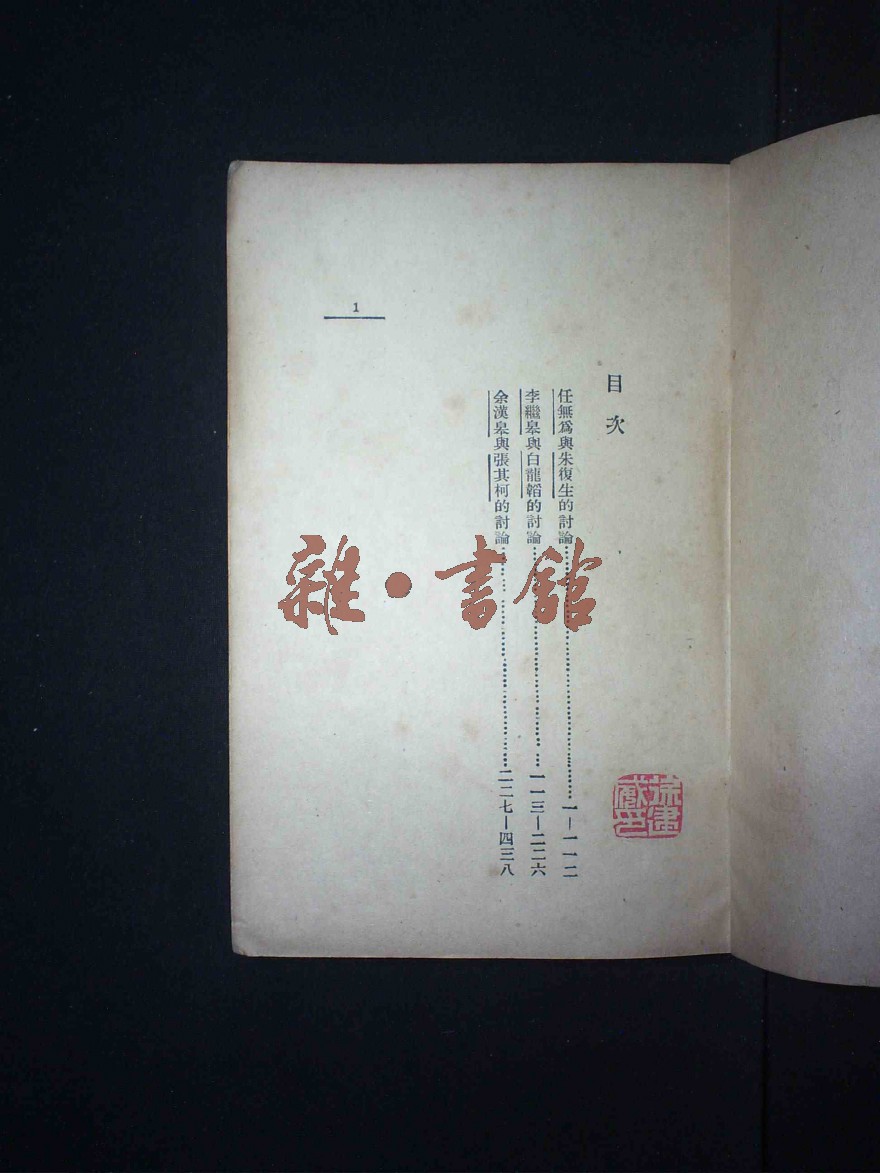 目次
任無爲與朱復生的討論……一—一一二
李繼皋與白龍韜的討論……一一三—二二六
余漢皋與張其柯的討論……二二七—四三八
1
雜·書館